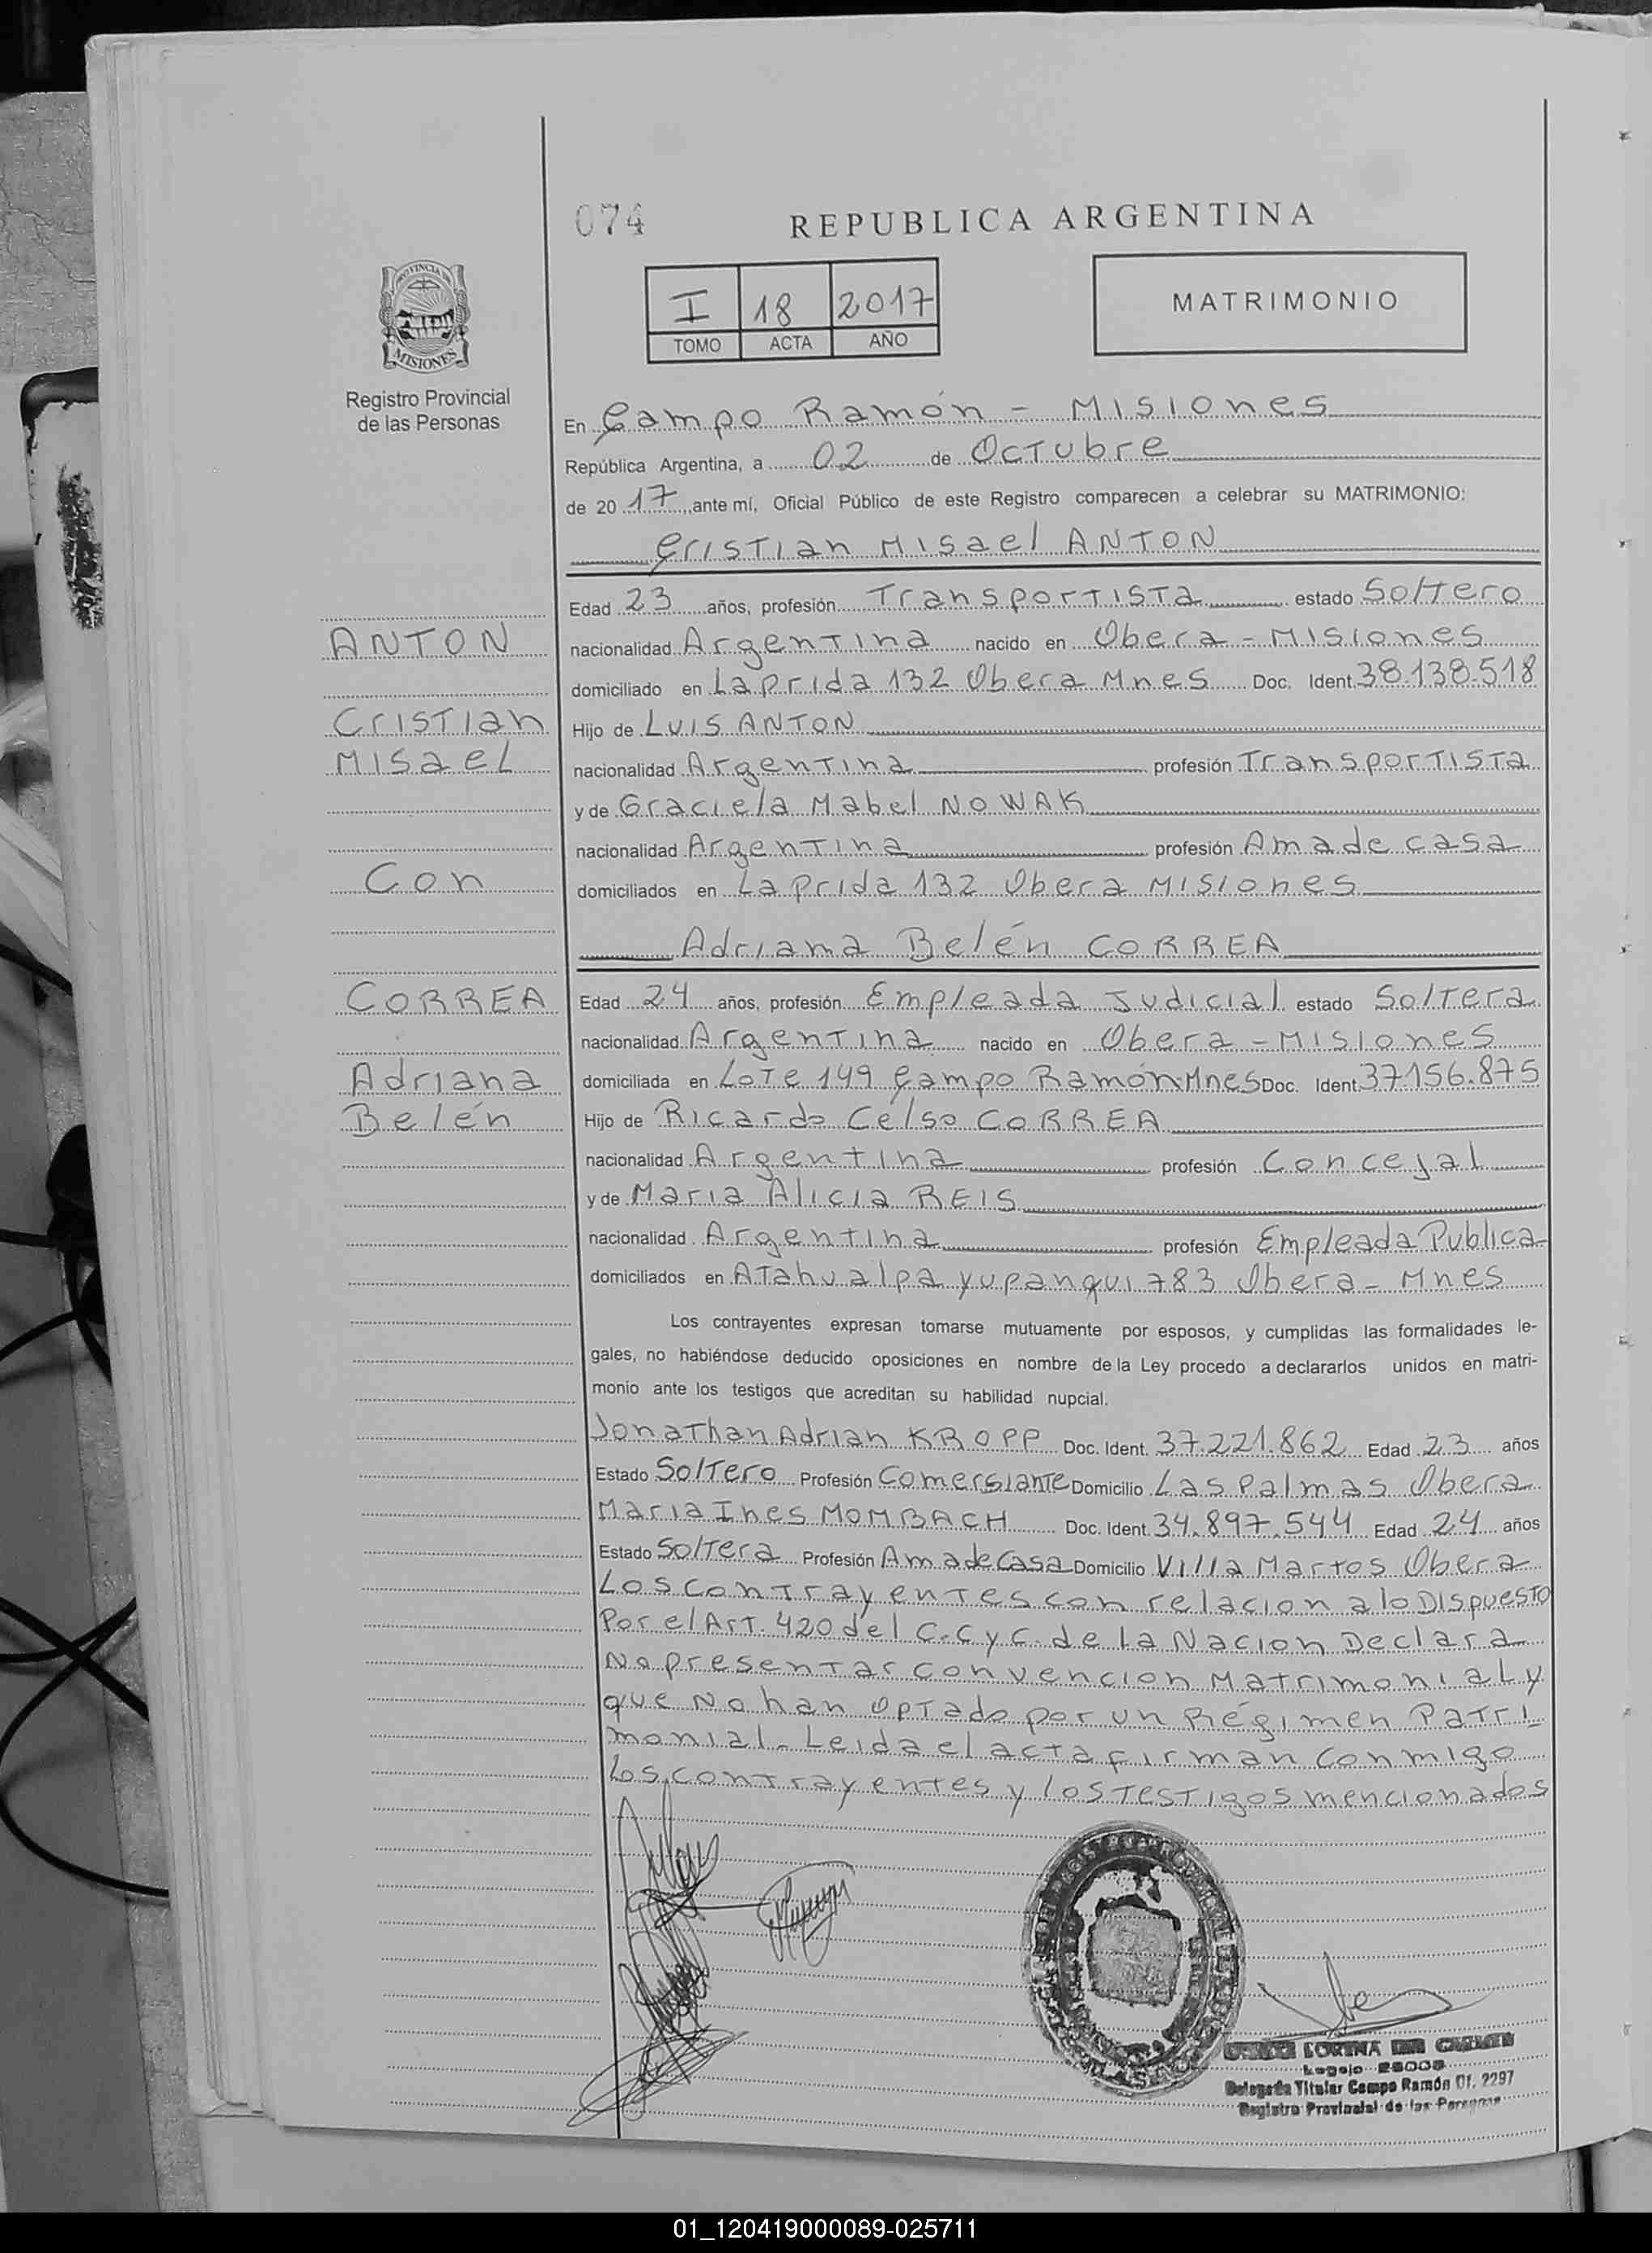 074
REPUBLICA ARGENTINA
PROVINCIA DE
MISIONES
Registro Provincial
de las Personas
I 18 2017
TOMO ACTA AÑO
MATRIMONIO
En Campo Ramón - Misiones
República Argentina, a 02 de Octubre
de 2017 ante mí, Oficial Público de este Registro comparecen a celebrar su MATRIMONIO:
Cristian Misael ANTON
Edad 23 años, profesión Transportista estado Soltero
ANTON
nacionalidad Argentina nacido en Obera - Misiones
domiciliado en Laprida 132 Obera Mnes Doc. Ident. 38.138.518
Cristian
Hijo de Luis ANTON
Misael
nacionalidad Argentina profesión Transportista
y de Graciela Mabel NOWAK
nacionalidad Argentina profesión Ama de casa
Con
domiciliados en Laprida 132 Obera Misiones
Adriana Belén CORREA
CORREA
Edad 24 años, profesión Empleada Judicial estado Soltera
nacionalidad Argentina nacido en Obera - Misiones
Adriana
domiciliada en Lote 149 Campo Ramón Mnes Doc. Ident. 37156.875
Belén
Hijo de Ricardo Celso CORREA
nacionalidad Argentina profesión Concejal
y de Maria Alicia REIS
nacionalidad Argentina profesión Empleada Publica
domiciliados en Atahualpa yupanqui 783 Obera - Mnes
Los contrayentes expresan tomarse mutuamente por esposos, y cumplidas las formalidades le-
gales, no habiéndose deducido oposiciones en nombre de la Ley procedo a declararlos unidos en matri-
monio ante los testigos que acreditan su habilidad nupcial.
Jonathan Adrian KROPP Doc. Ident. 37.221.862 Edad 23 años
Estado Soltero Profesión Comersiante Domicilio Las Palmas Obera
Maria Ines MOMBACH Doc. Ident. 34.897.544 Edad 24 años
Estado Soltera Profesión Ama de Casa Domicilio Villa Martos Obera
Los contrayentes con relacion a lo Dispuesto
Por el Art. 420 del C.C y C. de la Nacion Declara
No presentar convencion Matrimonial y
que No han optado por un Régimen Patri
monial. Leida el acta firman conmigo
Los contrayentes y los testigos mencionados
LORENA DEL CARMEN
Legajo
Delegada Titular Campo Ramón Of. 2297
Registro Provincial de las Personas
01_120419000089-025711